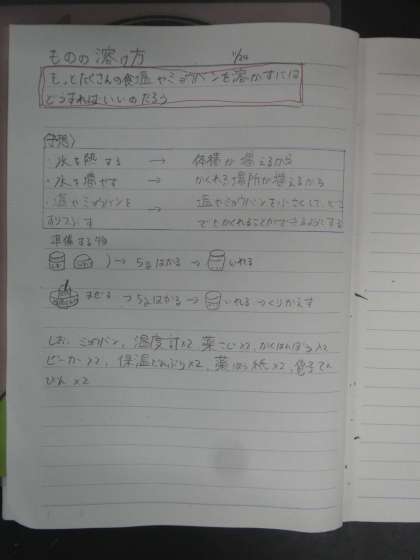 ものの溶け方 11/24
もっとたくさんの食塩やミョウバンを溶かすには
どうすればいいのだろう
予想
・水を熱する → 体積が増えるから
・水を増やす → かくれる場所が増えるから
・塩やミョウバンを → 塩やミョウバンを小さくして、どこ
すりつぶす でもかくれることができるようにする
準備する物
→ 5gはかる → いれる
まぜる → 5gはかる → いれる → くりかえす
しお、ミョウバン、温度計×2 薬さじ×2、かくはんぼう×2
ビーカー×2、保温どんぶり×2、薬ほう紙×2、電子てん
びん×2